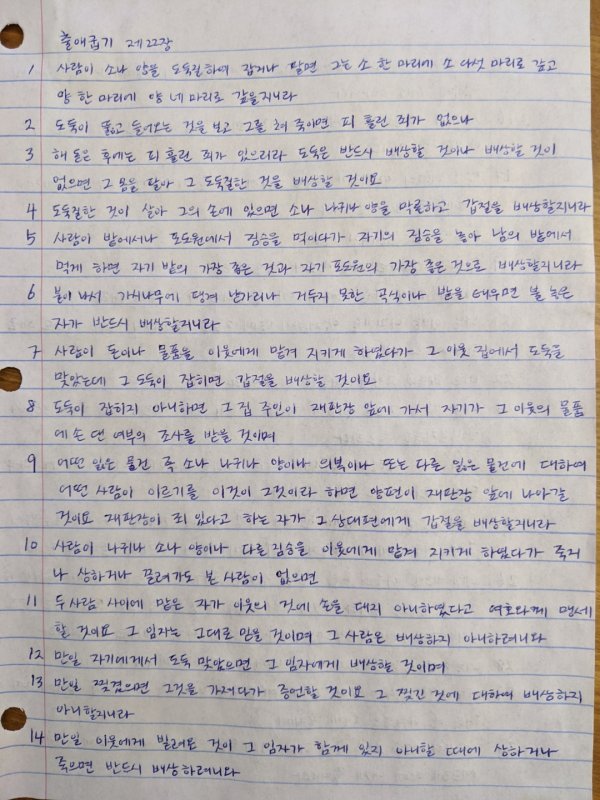 출애굽기 제22장
1 사람이 소나 양을 도둑질하여 잡거나 팔면 그는 소 한 마리에 소 다섯 마리로 갚고
양 한 마리에 양 네 마리로 갚을지니라
2 도둑이 뚫고 들어오는 것을 보고 그를 쳐 죽이면 피 흘린 죄가 없으나
3 해 돋은 후에는 피 흘린 죄가 있으리라 도둑은 반드시 배상할 것이나 배상할 것이
없으면 그 몸을 팔아 그 도둑질한 것을 배상할 것이요
4 도둑질한 것이 살아 그의 손에 있으면 소나 나귀나 양을 막론하고 갑절을 배상할지니라
5 사람이 밭에서나 포도원에서 짐승을 먹이다가 자기의 짐승을 놓아 남의 밭에서
먹게 하면 자기 밭의 가장 좋은 것과 자기 포도원의 가장 좋은 것으로 배상할지니라
6 불이 나서 가시나무에 댕겨 낟가리나 거두지 못한 곡식이나 밭을 태우면 불 놓은
자가 반드시 배상할지니라
7 사람이 돈이나 물품을 이웃에게 맡겨 지키게 하였다가 그 이웃 집에서 도둑을
맞았는데 그 도둑이 잡히면 갑절을 배상할 것이요
8 도둑이 잡히지 아니하면 그 집 주인이 재판장 앞에 가서 자기가 그 이웃의 물품
에 손 댄 여부의 조사를 받을 것이며
9 어떤 잃은 물건 즉 소나 나귀나 양이나 의복이나 또는 다른 잃은 물건에 대하여
어떤 사람이 이르기를 이것이 그것이라 하면 양편이 재판장 앞에 나아갈
것이요 재판장이 죄 있다고 하는 자가 그 상대편에게 갑절을 배상할지니라
10 사람이 나귀나 소나 양이나 다른 짐승을 이웃에게 맡겨 지키게 하였다가 죽거
나 상하거나 끌려가도 본 사람이 없으면
11 두 사람 사이에 맡은 자가 이웃의 것에 손을 대지 아니하였다고 여호와께 맹세
할 것이요 그 임자는 그대로 믿을 것이며 그 사람은 배상하지 아니하려니와
12 만일 자기에게서 도둑 맞았으면 그 임자에게 배상할 것이며
13 만일 찢겼으면 그것을 가져다가 증언할 것이요 그 찢긴 것에 대하여 배상하지
아니할지니라
14 만일 이웃에게 빌려온 것이 그 임자가 함께 있지 아니할 때에 상하거나
죽으면 반드시 배상하려니와